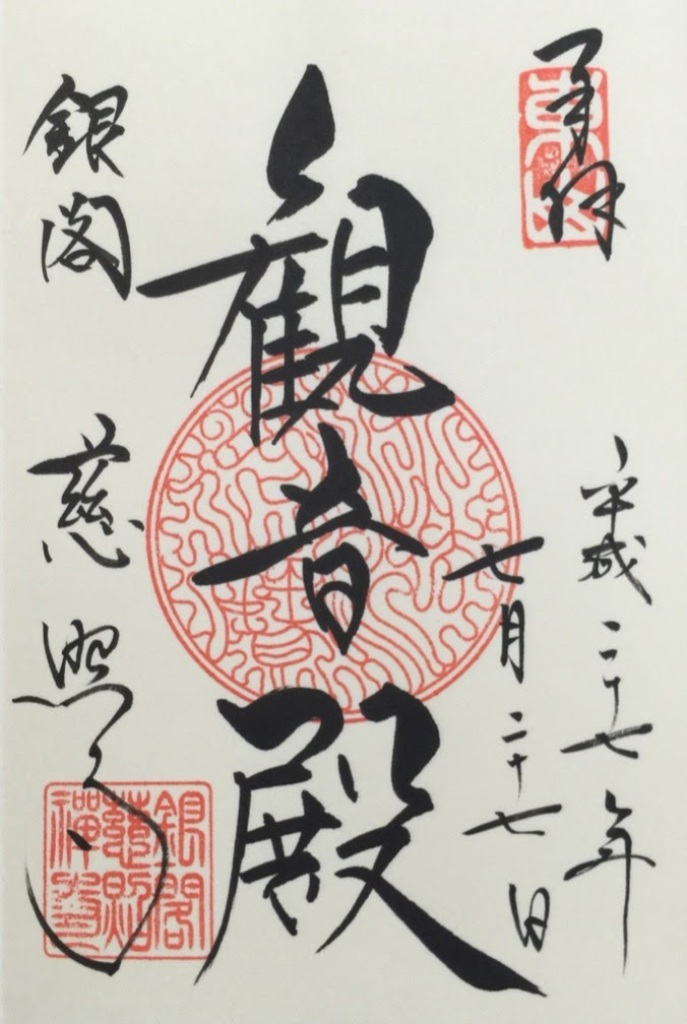 奉拝
平成二十七年
七月二十七日
観音殿
銀閣 慈照寺
銀閣
慈照
禅寺